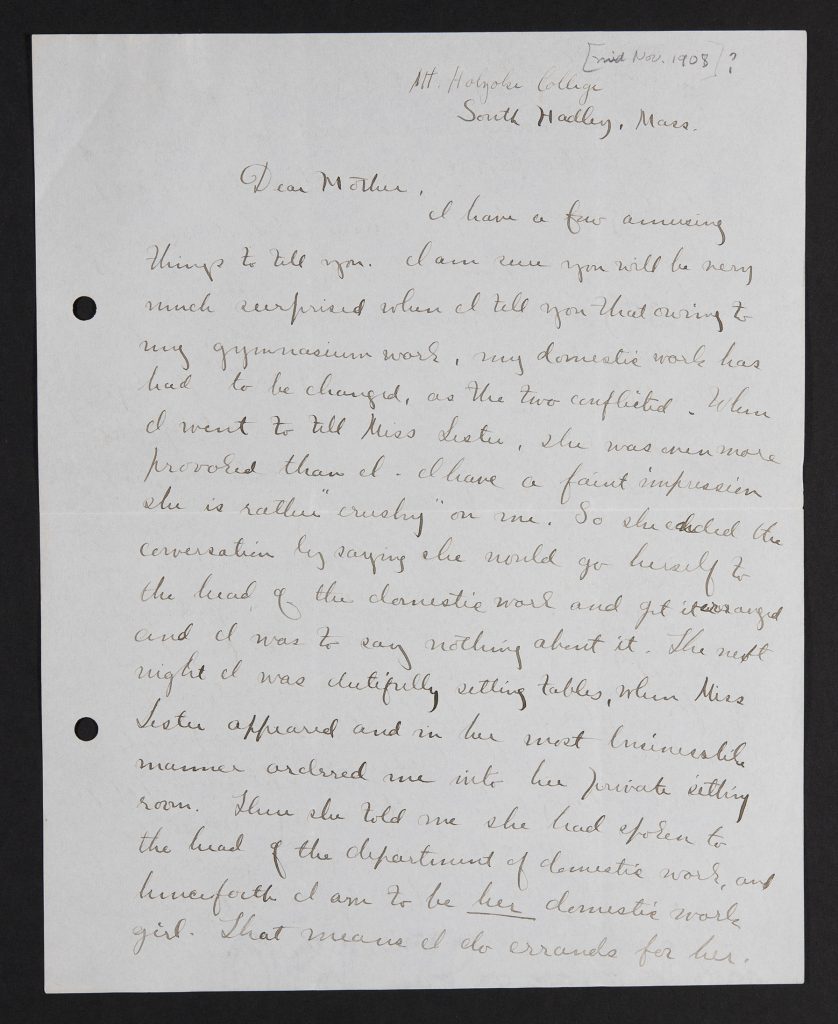 [mid Nov. 1908]?
Mt. Holyoke College
South Hadley, Mass.
Dear Mother,
I have a few amusing
things to tell you. I am sure you will be very
much surprised when I tell you that owing to
my gymnasium work, my domestic work has
had to be changed, as the two conflicted. When
I went to tell Miss Lester, she was even more
provoked than I. I have a faint impression
she is rather "crushy" on me. So she ended the
conversation by saying she would go herself to
the head of the domestic work and get it arranged
and I was to say nothing about it. The next
night I was dutifully setting tables, when Miss
Lester appeared and in her most businesslike
manner ordered me into her private sitting
room. There she told me she had spoken to
the head of the department of domestic work, and
henceforth I am to be her domestic work
girl. That means I do errands for her.